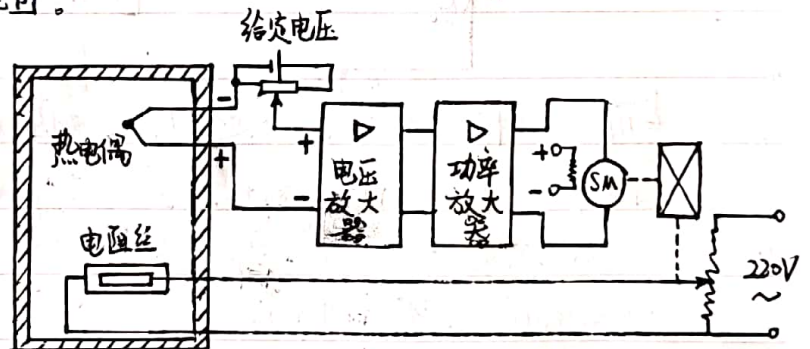 给定电压
热电偶
-
+
+
-
电压
放大
器
功率
放大
器
+
-
SM
电阻丝
220V
~